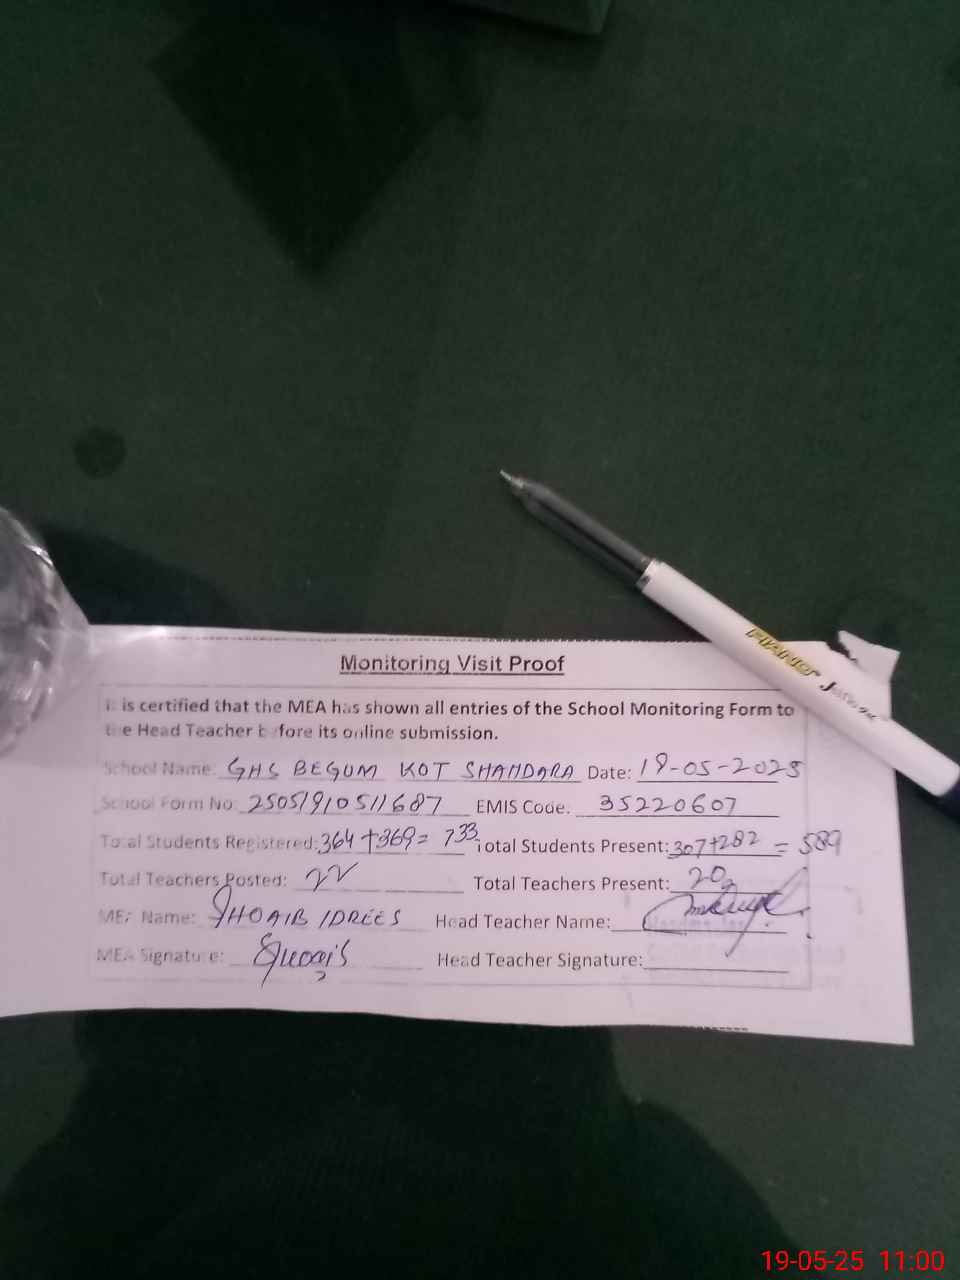 Monitoring Visit Proof
It is certified that the MEA has shown all entries of the School Monitoring Form to
the Head Teacher before its online submission.
School Name: GHS BEGUM KOT SHAHDARA Date: 19-05-2025
School Form No: 25051910511687 EMIS Code: 35220607
Total Students Registered: 364+369= 733 Total Students Present: 307+282 = 589
Total Teachers Posted: 22 Total Teachers Present: 20
MEA Name: SHOAIB IDREES Head Teacher Name:
MEA Signature: Shoaib Head Teacher Signature:
PIANO
19-05-25 11:00